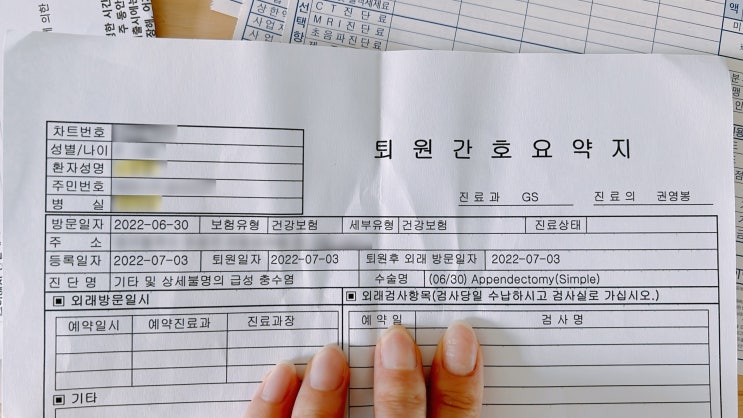 에 의한
상한
사업자
사업
선택항
CT진단료
MRI진단료
초음파진단료
액
진
미
차트번호
성별/나이
환자성명
주민번호
병 실
퇴 원 간 호 요 약 지
진료과 GS 진료의 권영봉
방문일자 2022-06-30 보험유형 건강보험 세부유형 건강보험 진료상태
주 소
등록일자 2022-07-03 퇴원일자 2022-07-03 퇴원후 외래 방문일자 2022-07-03
진 단 명 기타 및 상세불명의 급성 충수염 수술명 (06/30) Appendectomy(Simple)
▣ 외래방문일시 ▣ 외래검사항목(검사당일 수납하시고 검사실로 가십시오.)
예약일시 예약진료과 진료과장 예 약 일 검 사 명
▣ 기타